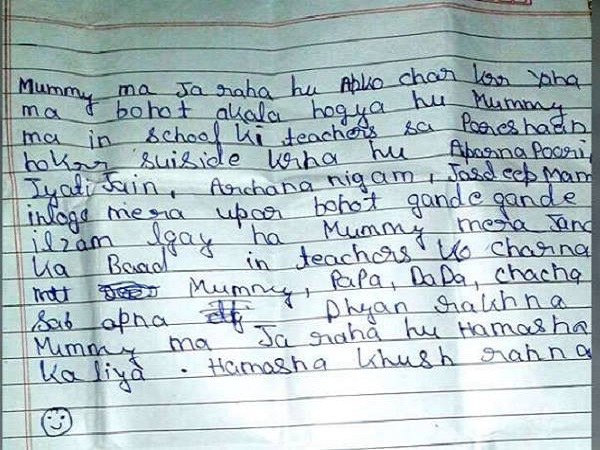 Mummy ma Ja raha hu Apko char krr
ma bohot akala hogya hu Mummy
ma in school ki teachers sa Pareshaan
hokrr suiside krha hu AparnaPoori,
Jyati Jain, Archana nigam, Jasdeep Mam
inlogo mera upar bohot gande gande
ilzam lgay ha Mummy mera Jana
Ka Baad in teachers ko charna
matt Mummy, PaPa, DaDa, chacha
Sab apna Dhyan rakhna
Mummy ma Ja raha hu Hamasha
Ka liya . Hamasha khush rahna